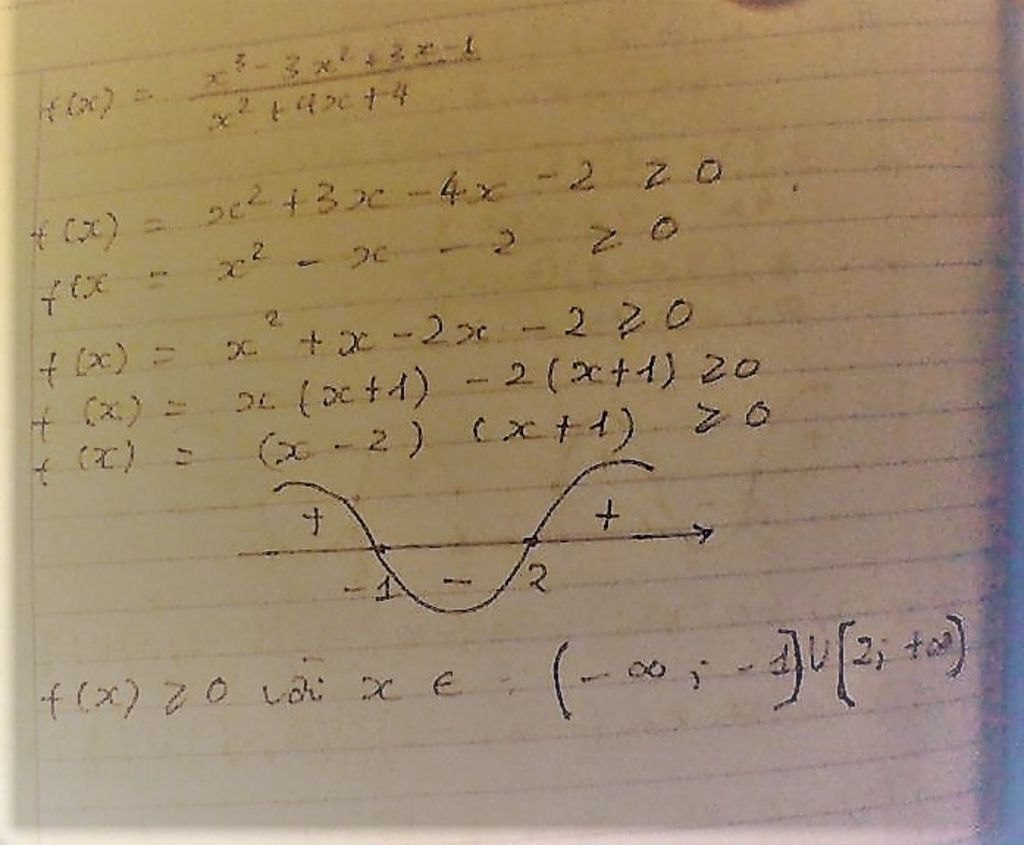 f(x) = x³ - 3x² + 3x - 1 / x² + 4x + 4
f(x) = x² + 3x - 4x - 2 ≥ 0
f(x = x² - x - 2 ≥ 0
f(x) = x² + x - 2x - 2 ≥ 0
f(x) = x(x+1) - 2(x+1) ≥ 0
f(x) = (x-2) (x+1) ≥ 0
+ +
-1 - 2
f(x) ≥ 0 với x ∈ (-∞; -1] ∪ [2; +∞)